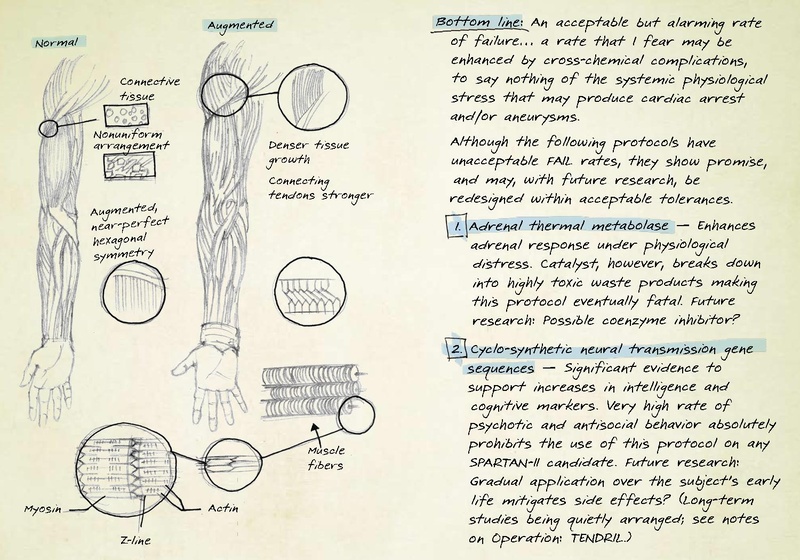 Normal
Augmented
Connective
tissue
Nonuniform
arrangement
Augmented,
near-perfect
hexagonal
symmetry
Denser tissue
growth
Connecting
tendons stronger
Muscle
fibers
Myosin
Actin
Z-line
Bottom line: An acceptable but alarming rate
of failure... a rate that I fear may be
enhanced by cross-chemical complications,
to say nothing of the systemic physiological
stress that may produce cardiac arrest
and/or aneurysms.
Although the following protocols have
unacceptable FAIL rates, they show promise,
and may, with future research, be
redesigned within acceptable tolerances.
1. Adrenal thermal metabolase — Enhances
adrenal response under physiological
distress. Catalyst, however, breaks down
into highly toxic waste products making
this protocol eventually fatal. Future
research: Possible coenzyme inhibitor?
2. Cyclo-synthetic neural transmission gene
sequences — Significant evidence to
support increases in intelligence and
cognitive markers. Very high rate of
psychotic and antisocial behavior absolutely
prohibits the use of this protocol on any
SPARTAN-II candidate. Future research:
Gradual application over the subject's early
life mitigates side effects? (Long-term
studies being quietly arranged; see notes
on Operation: TENDRIL.)